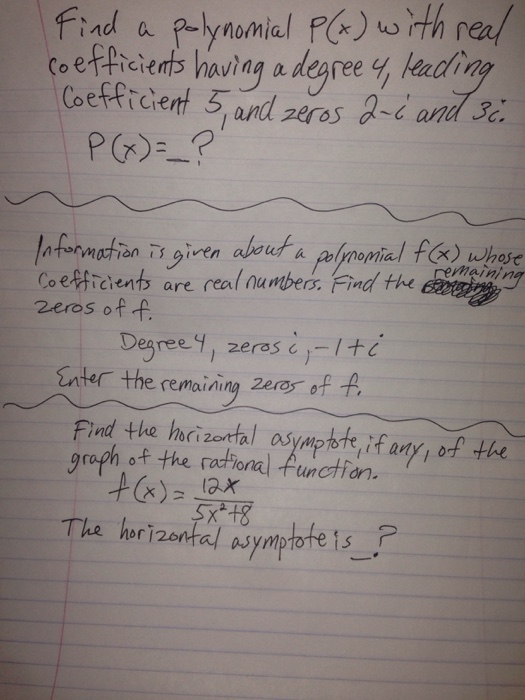 Find a polynomial P(x) with real
coefficients having a degree 4, leading
Coefficient 5, and zeros 2-i and 3i.
P(x)=_?
Information is given about a polynomial f(x) whose
Coefficients are real numbers. Find the remaining
zeros of f.
Degree 4, zeros i, -1+i
Enter the remaining zeros of f.
Find the horizontal asymptote, if any, of the
graph of the rational function.
f(x) = 12x
5x²+8
The horizontal asymptote is _?